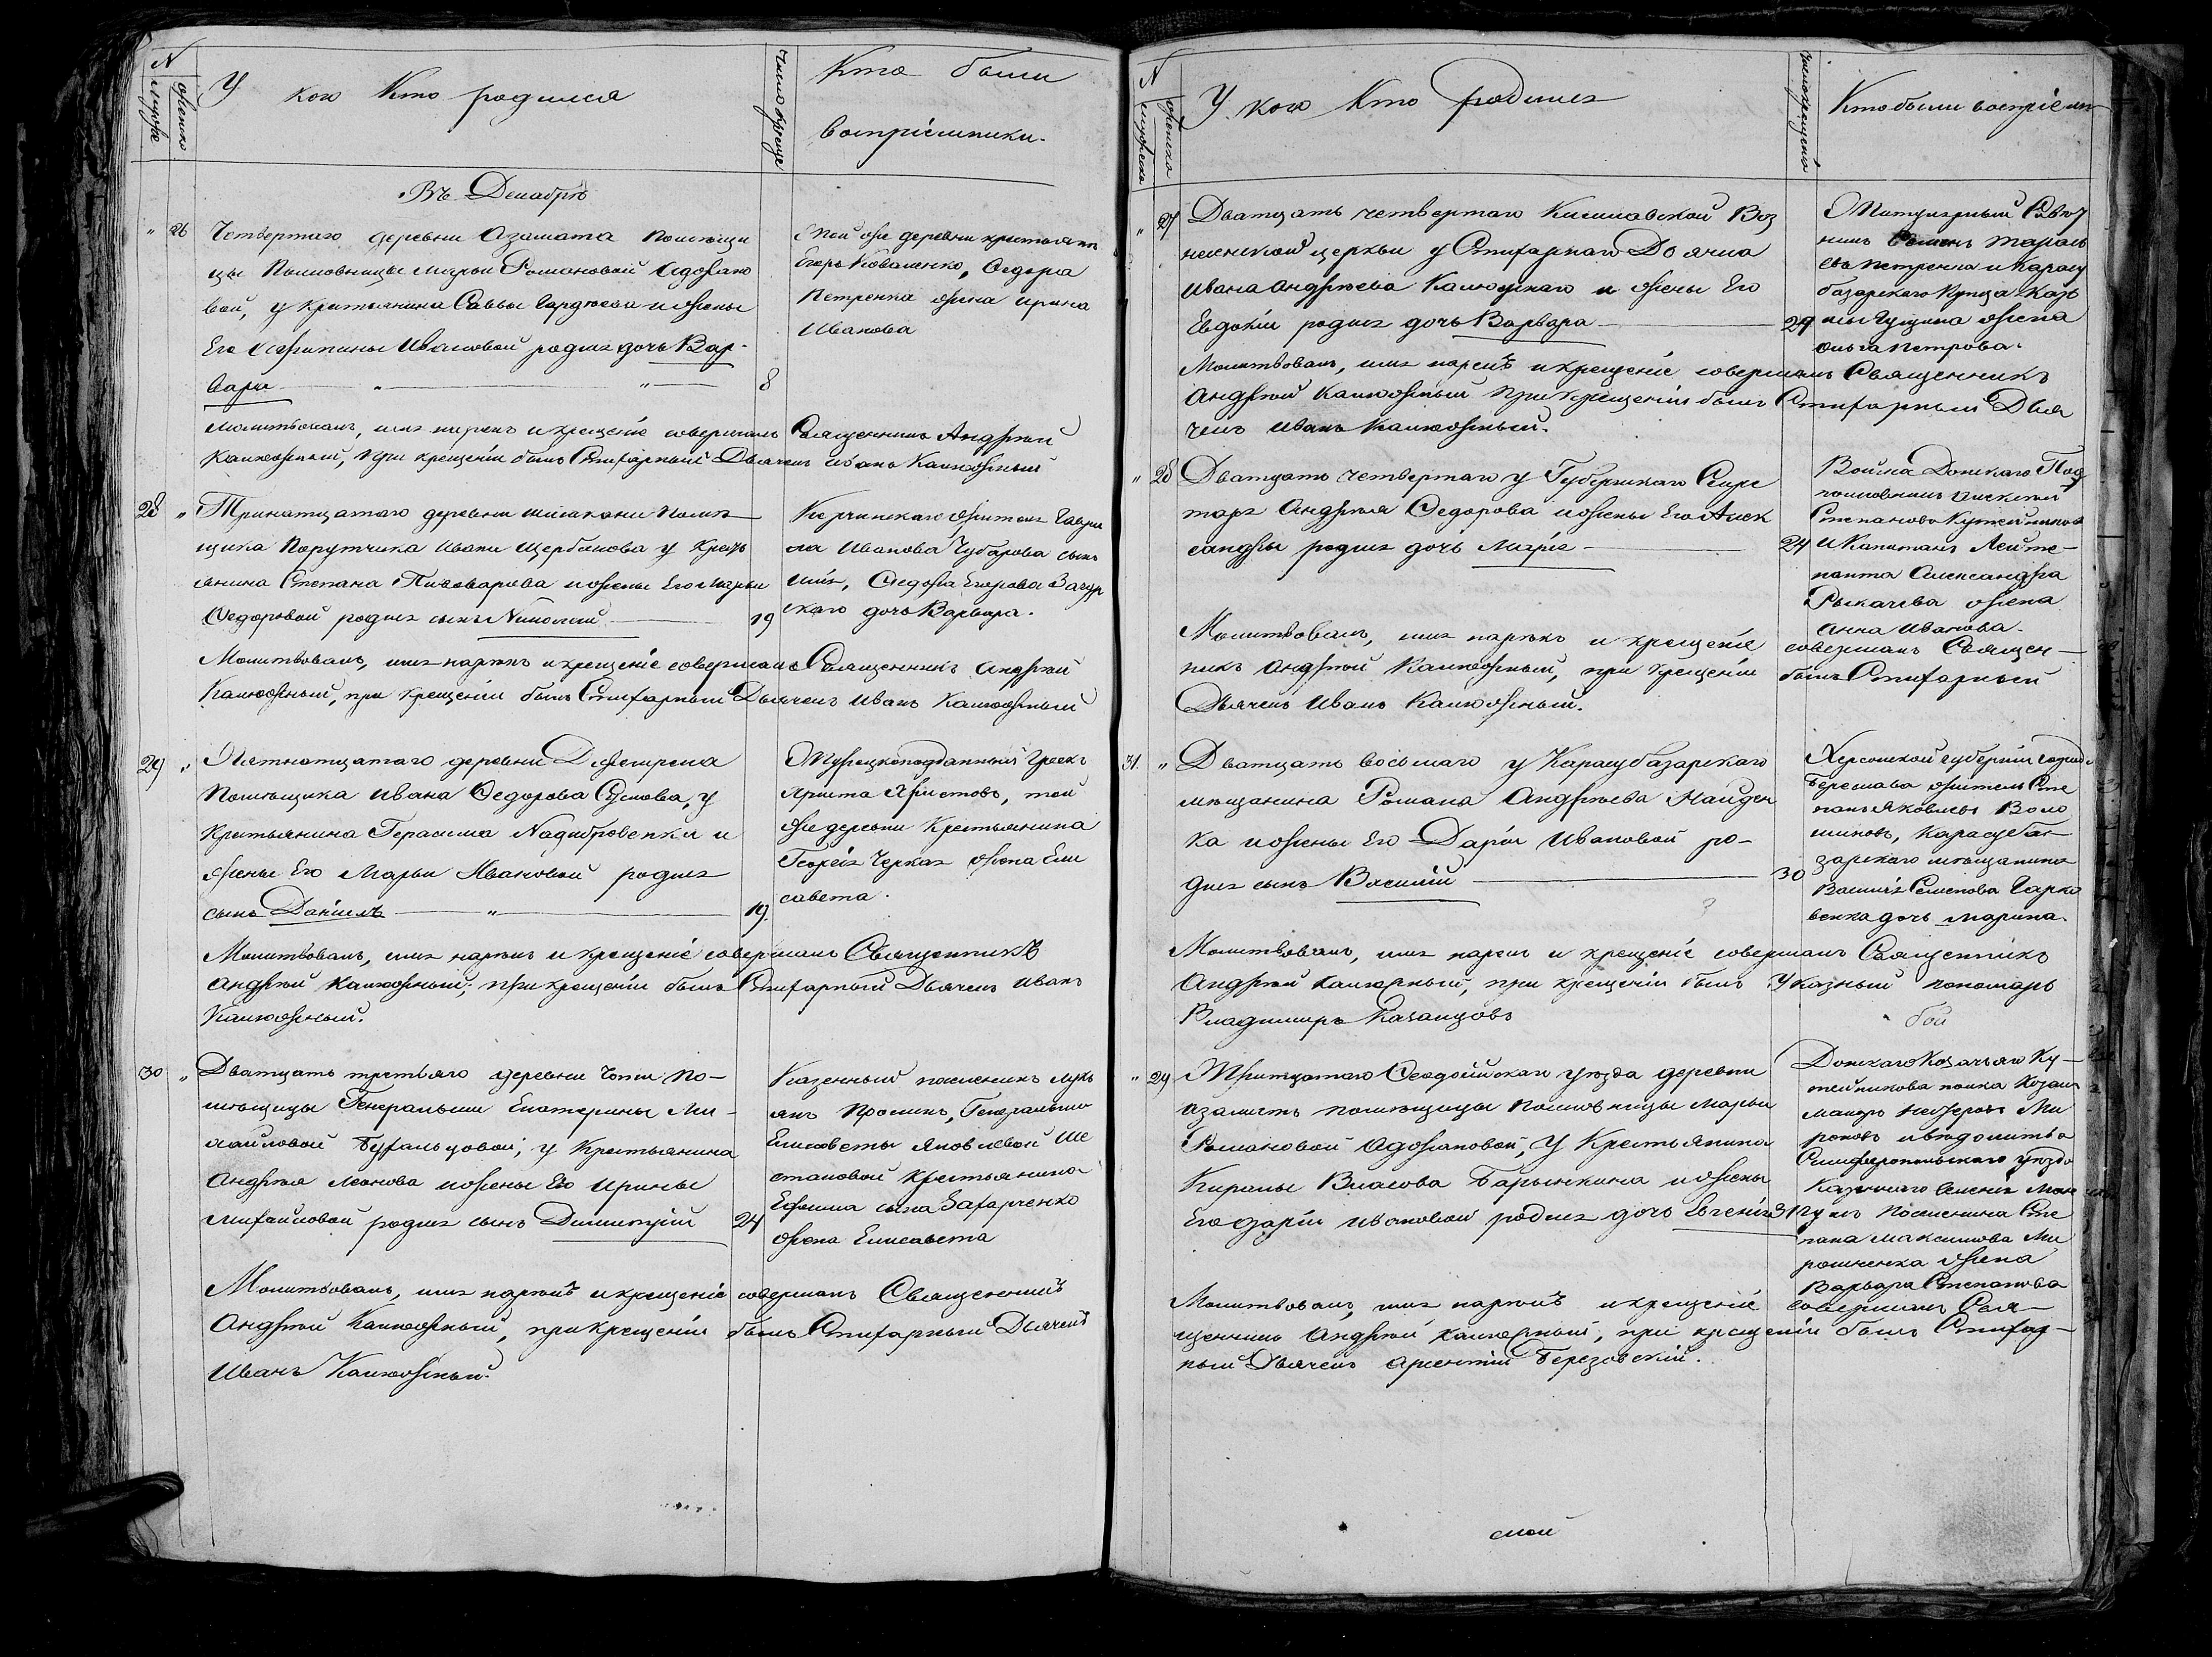 N
мужеска
женска
У кого Кто родился
Число крещен
Кто были
воспріемники.
Въ Декабрѣ
" 26 Четвертаго деревни Азамата помѣщи
цы Полковницы Марьи Романовой Адожано
вой, у крестьянина Саввы и жены
Его Ивановой родися дочь Вар-
вара 8
Той же деревни крестьянинъ
Егоръ Коваленко, Федора
Петренка жена Ирина
Иванова
Молитвовалъ, имя нарекъ и крещеніе совершилъ Священникъ Андрей
Калюжный, при крещеніи былъ Стихарный Дьячекъ Иванъ Калюжный
28 " Тринатцатаго деревни помѣ
щика Порутчика Ивана Щербакова у Кресть
янина Степана Пивоварова и жены Его Марьи
Федоровой родися сынъ Николай 19
Керчинскаго жителя Гаври
ла Иванова Чубарова сынъ
Федора Егорова Загур
скаго дочь Варвара.
Молитвовалъ, имя нарекъ и крещеніе совершалъ Священникъ Андрей
Калюжный, при крещеніи былъ Стихарный Дьячекъ Иванъ Калюжный
29 " Пятнатцатаго деревни
Помѣщика Ивана Федорова у
Крестьянина Герасима Надибровенка и
жены Его Марьи Ивановой родися
сынъ Даніилъ " 19.
Турецкоподданный Грекъ
Христа Христовъ, той
же деревни Крестьянина
Георгія Черказ жена Ели
савета.
Молитвовалъ, имя нарекъ и крещеніе совершалъ Священникъ
Андрей Калюжный; при крещеніи былъ Стихарный Дьячекъ Иванъ
Калюжный.
30 " Дватцать третьяго деревни По-
мѣщицы Генеральши Екатерины Ми-
хайловой у Крестьянина
Андрея Леонова и жены Его Ирины
Михайловой родися сынъ Димитрій 24
Казенный поселенинъ Лукь
янъ Пронинъ, Генеральши
Елисаветы Яковлевой Ше
становой Крестьянина
Ефима сына Захарченко
жена Елисавета
Молитвовалъ, имя нарекъ и крещеніе совершалъ Священникъ
Андрей Калюжный, при крещеніи былъ Стихарный Дьячекъ
Иванъ Калюжный.
N
мужеска
женска
У кого Кто родися
Число крещенія
Кто были воспріемн
" 27 Дватцать четвертаго Воз
несенской церкви у Стихарнаго Дьячка
Ивана Андреева Калюжнаго и жены Его
Евдокіи родися дочь Варвара 29
Титулярный Совѣт
никъ Семенъ Тарась
евъ Петренка и Карасу
базарскаго Купца Козь
мы жена
Ольга Петрова.
Молитвовалъ, имя нарекъ и крещеніе совершалъ Священникъ
Андрей Калюжный при Крещеніи былъ Стихарный Дья
чекъ Иванъ Калюжный.
" 28 Дватцать четвертаго у Губернскаго Секре
таря Андрея Федорова и жены Его Алек
сандры родися дочь Марія 24
Войска Донскаго Под
полковникъ Алексей
Степановъ Кутейниковъ
и Капитанъ Лейте-
нанта Александра
Рыкачева жена
Анна Иванова.
Молитвовалъ, имя нарекъ и крещеніе совершалъ Священ-
никъ Андрей Калюжный, при крещеніи былъ Стихарный
Дьячекъ Иванъ Калюжный.
31. " Дватцать восьмаго у Карасубазарскаго
мѣщанина Романа Андреева Найден
ка и жены Его Даріи Ивановой ро-
дися сынъ Василій 30
Херсонской губерніи города
Береслава житель Сте
панъ Яковлевъ Воло
шиновъ, Карасуба-
зарскаго мѣщанина
Василія Семенова Гарко
венка дочь Марина.
Молитвовалъ, имя нарекъ и крещеніе совершалъ Священникъ
Андрей Калюжный, при крещеніи былъ Указный пономарь
Владимиръ Казанцовъ
бой
" 29 Тритцатаго Феодосійскаго уѣзда деревни
Азаматъ помѣщицы Полковницы Марьи
Романовой Адожановой, у Крестьянина
Кирилы Власова Барынкина и жены
Его Даріи Ивановой родися дочь Евгенія 31
Донскаго Козачьяго Ку-
тейникова полка Козакъ
Ми
роновъ и вѣдомства
Симферопольскаго уѣзда
Казеннаго селенія
поселенина Сте
пана Максимова Ми
рошненка жена
Варвара Степанова
Молитвовалъ, имя нарекъ и крещеніе совершалъ Свя-
щенникъ Андрей Калюжный, при крещеніи былъ Стихар-
ный Дьячекъ Арсентій Березовскій.
мой